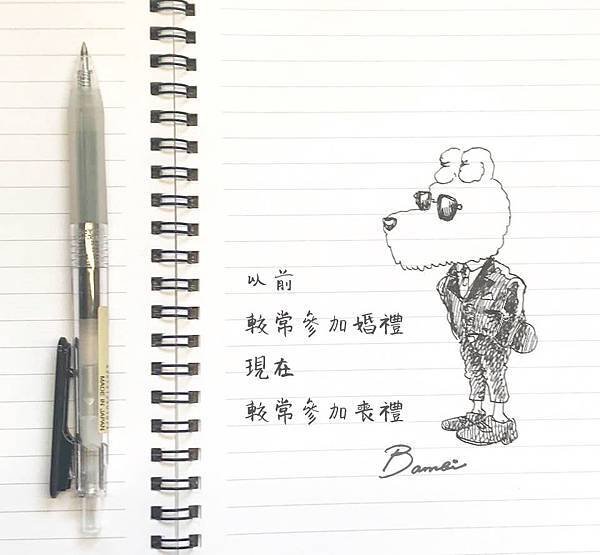 以前
較常參加婚禮
現在
較常參加喪禮
Bambi
MADE IN JAPAN